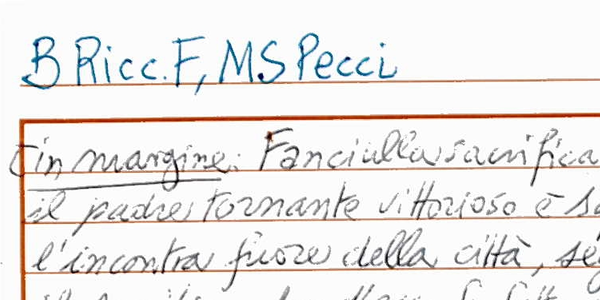 B Ricc. F, MS Pecci
[in margine: Fanciulla sacrifica
il padre tornante vittorioso è
l'incontra fuore della città,